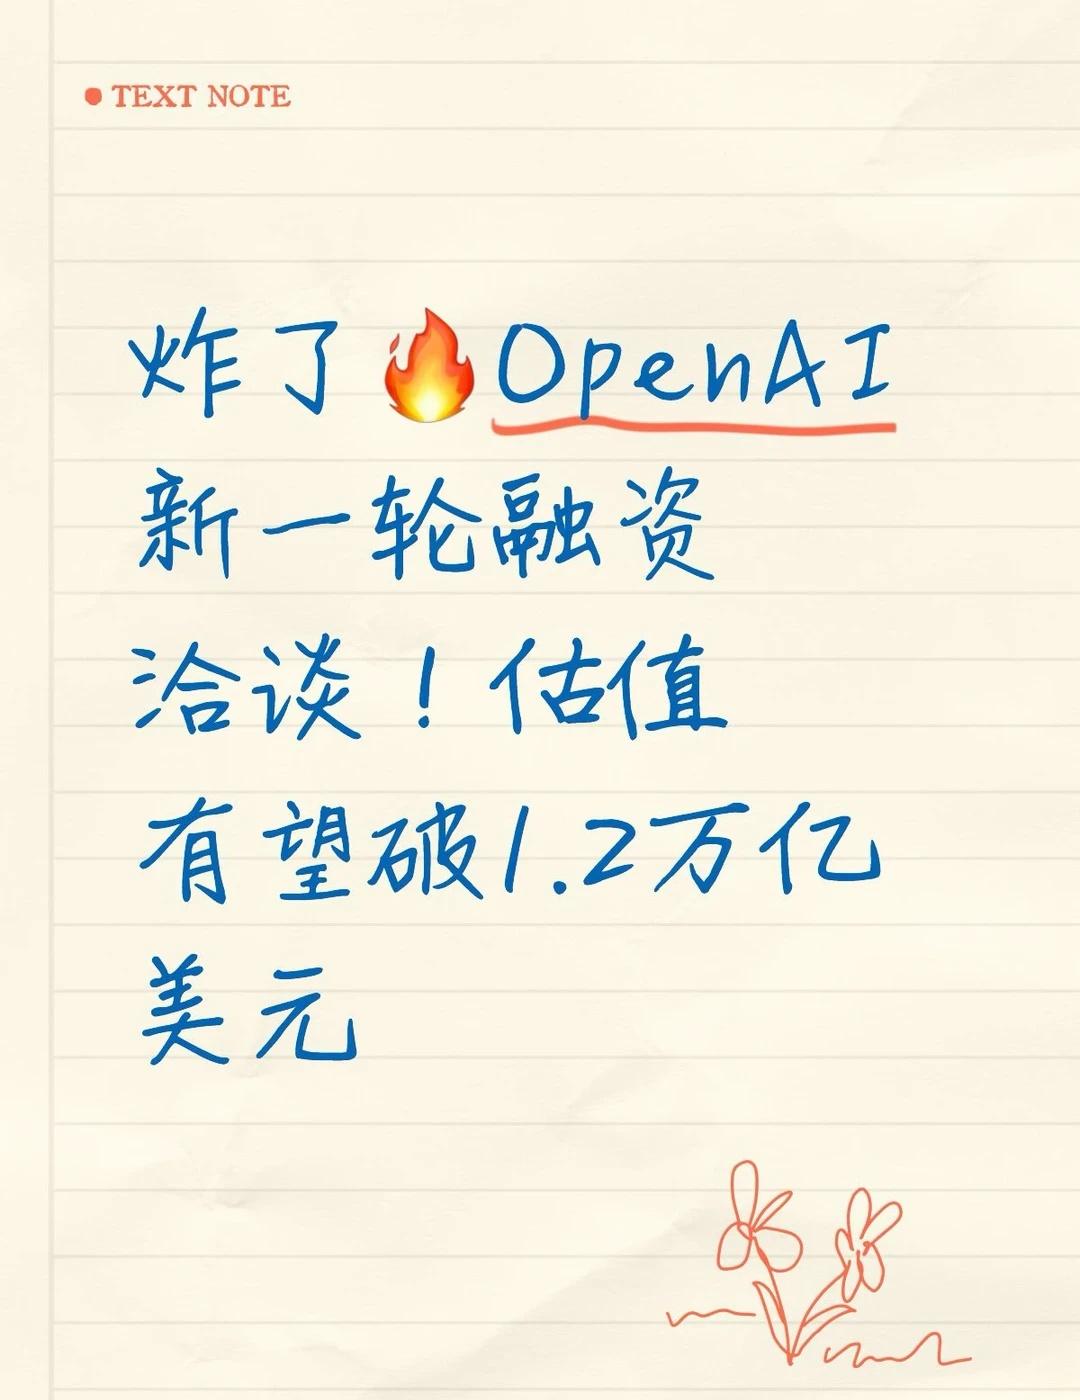 TEXT NOTE
炸了🔥OpenAI
新一轮融资
洽谈！估值
有望破1.2万亿
美元